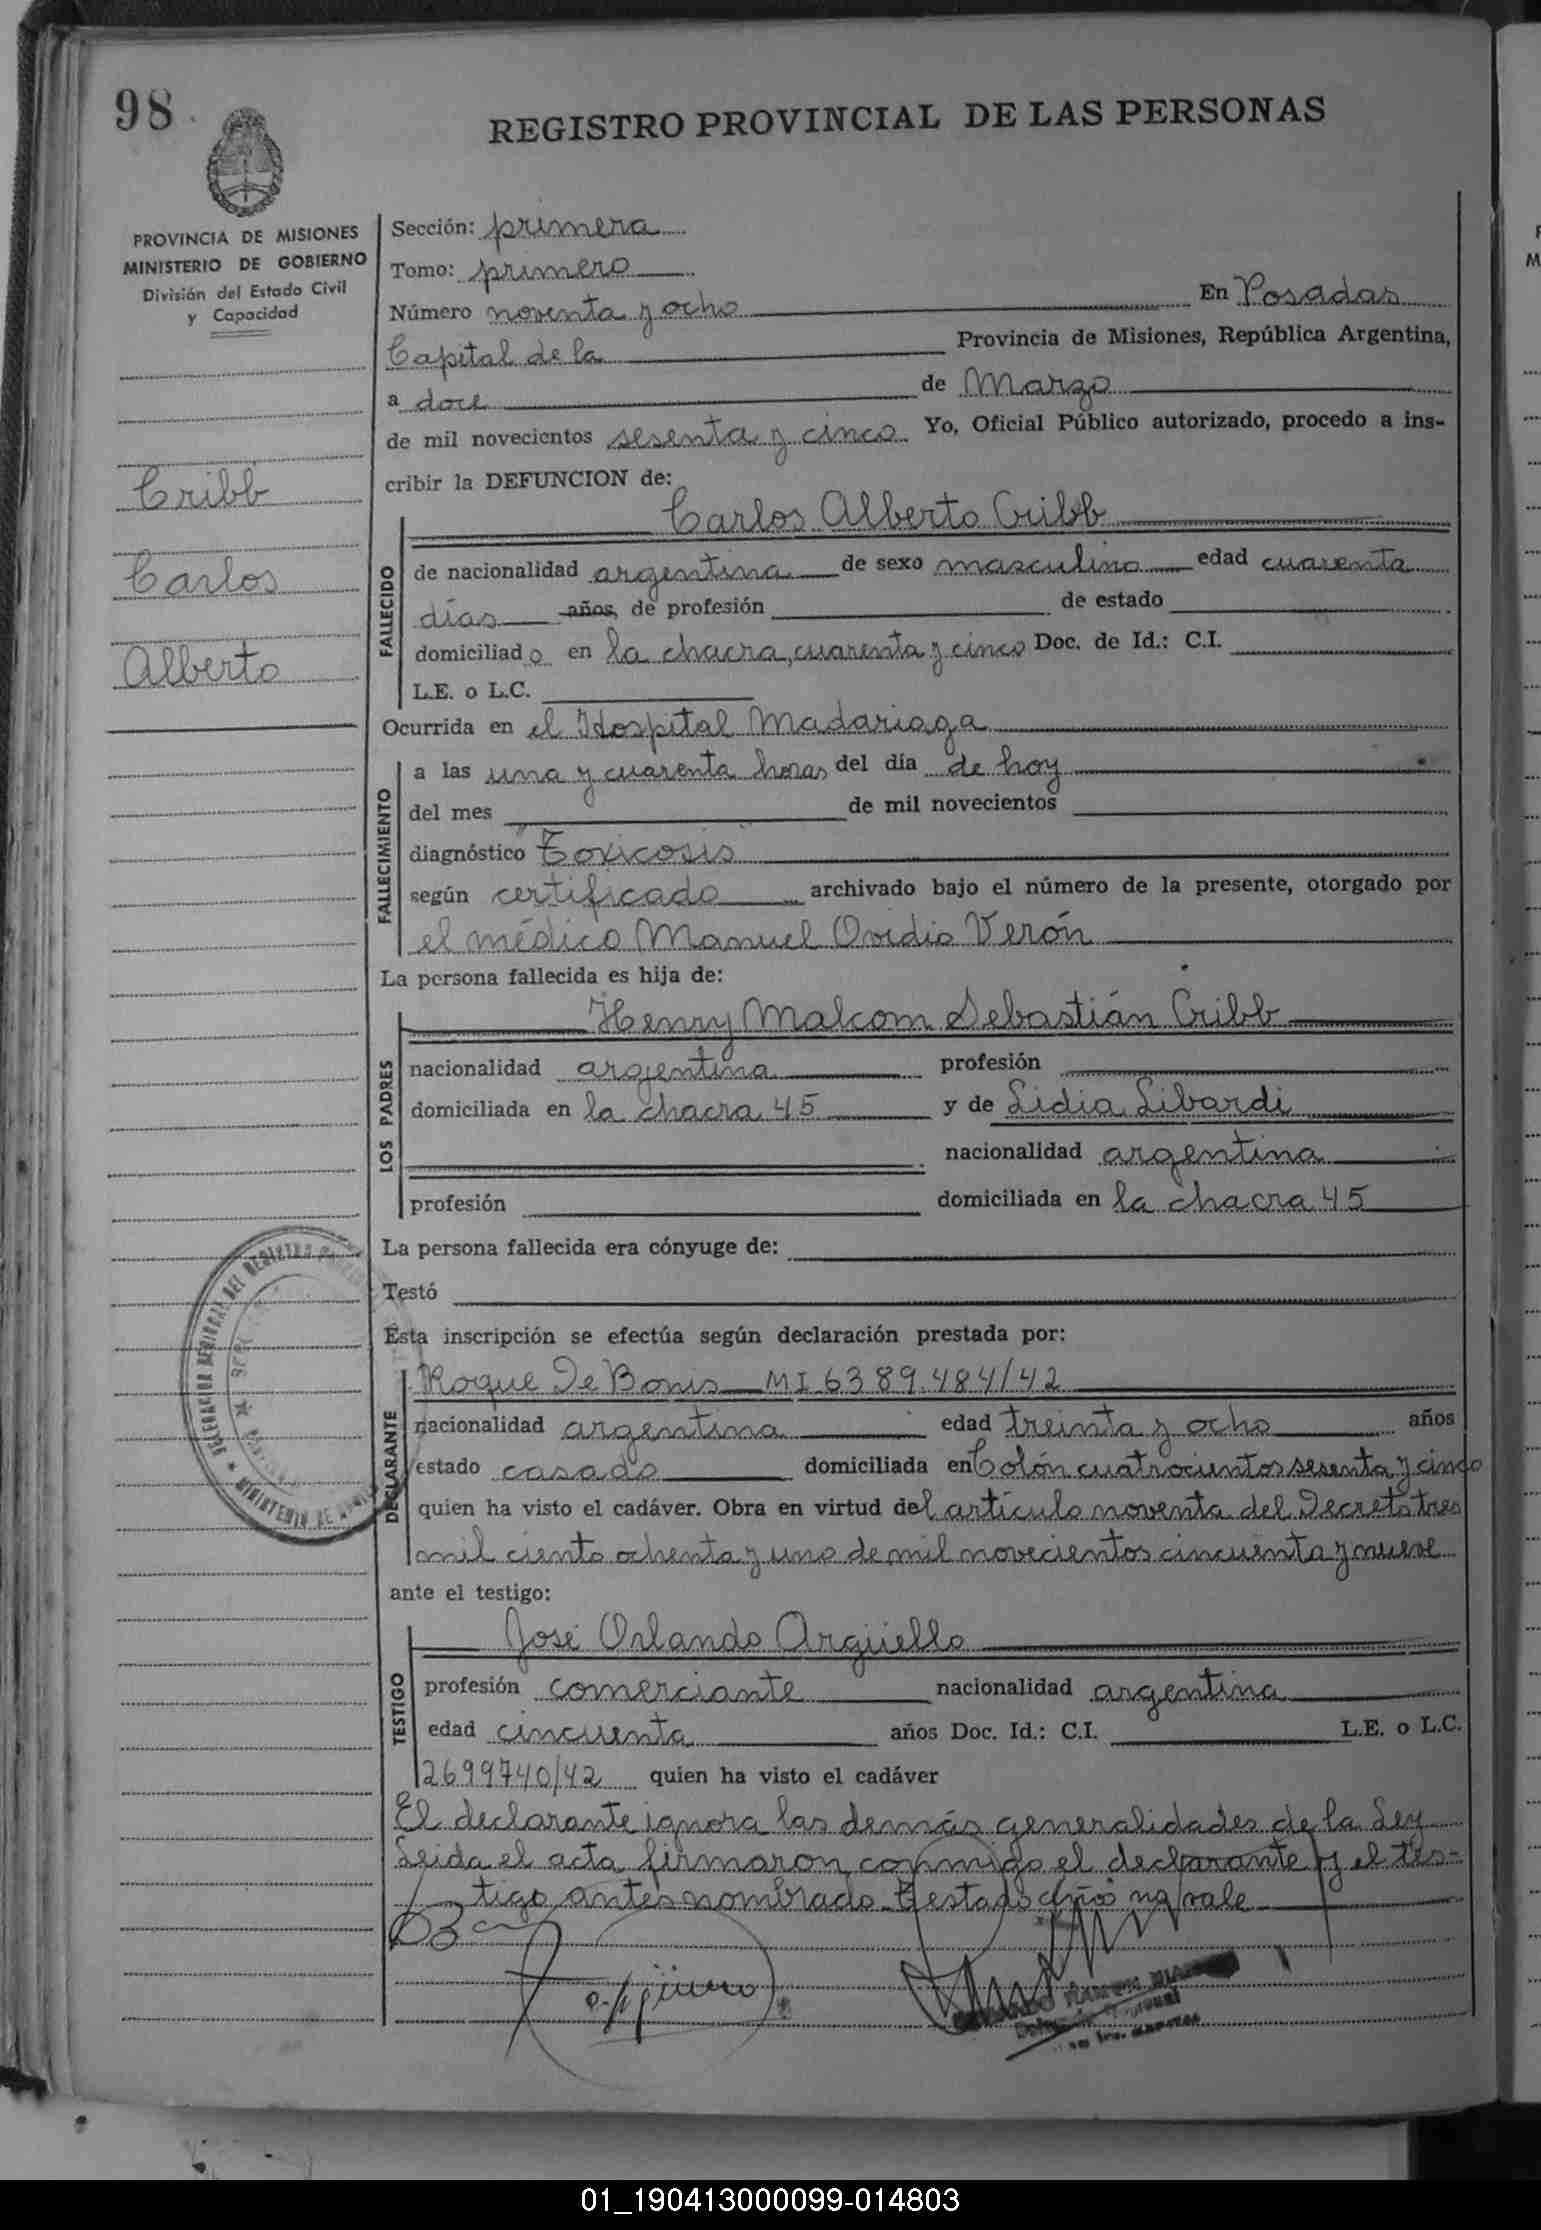 98
REGISTRO PROVINCIAL DE LAS PERSONAS
PROVINCIA DE MISIONES
MINISTERIO DE GOBIERNO
División del Estado Civil
y Capacidad
Cribb
Carlos
Alberto
Sección: primera
Tomo: primero
Número noventa y ocho En Posadas
Capital de la Provincia de Misiones, República Argentina,
a doce de Marzo
de mil novecientos sesenta y cinco Yo, Oficial Público autorizado, procedo a ins-
cribir la DEFUNCION de:
Carlos Alberto Cribb
FALLECIDO
de nacionalidad argentina de sexo masculino edad cuarenta
días años, de profesión de estado
domiciliado en la chacra, cuarenta y cinco Doc. de Id.: C.I.
L.E. o L.C.
Ocurrida en el Hospital Madariaga
FALLECIMIENTO
a las una y cuarenta horas del día de hoy
del mes de mil novecientos
diagnóstico Toxicosis
según certificado archivado bajo el número de la presente, otorgado por
el médico Manuel Ovidio Verón
La persona fallecida es hija de:
Henry Malcom Sebastián Cribb
LOS PADRES
nacionalidad argentina profesión
domiciliada en la chacra 45 y de Lidia Libardi
nacionalidad argentina
profesión domiciliada en la chacra 45
La persona fallecida era cónyuge de:
Testó
Esta inscripción se efectúa según declaración prestada por:
Roque De Bonis MI 6389.484/42
DECLARANTE
nacionalidad argentina edad treinta y ocho años
estado casado domiciliada en Colón cuatrocientos sesenta y cinco
quien ha visto el cadáver. Obra en virtud del artículo noventa del Decreto tres
mil ciento ochenta y uno de mil novecientos cincuenta y nueve
ante el testigo:
José Orlando Argüello
TESTIGO
profesión comerciante nacionalidad argentina
edad cincuenta años Doc. Id.: C.I. L.E. o L.C.
2699740/42 quien ha visto el cadáver
El declarante ignora las demás generalidades de la Ley
Leida el acta firmaron conmigo el declarante y el tes-
tigo antes nombrado. Testado años no vale
DELEGACION REGIONAL DEL REGISTRO
MINISTERIO DE
01_190413000099-014803